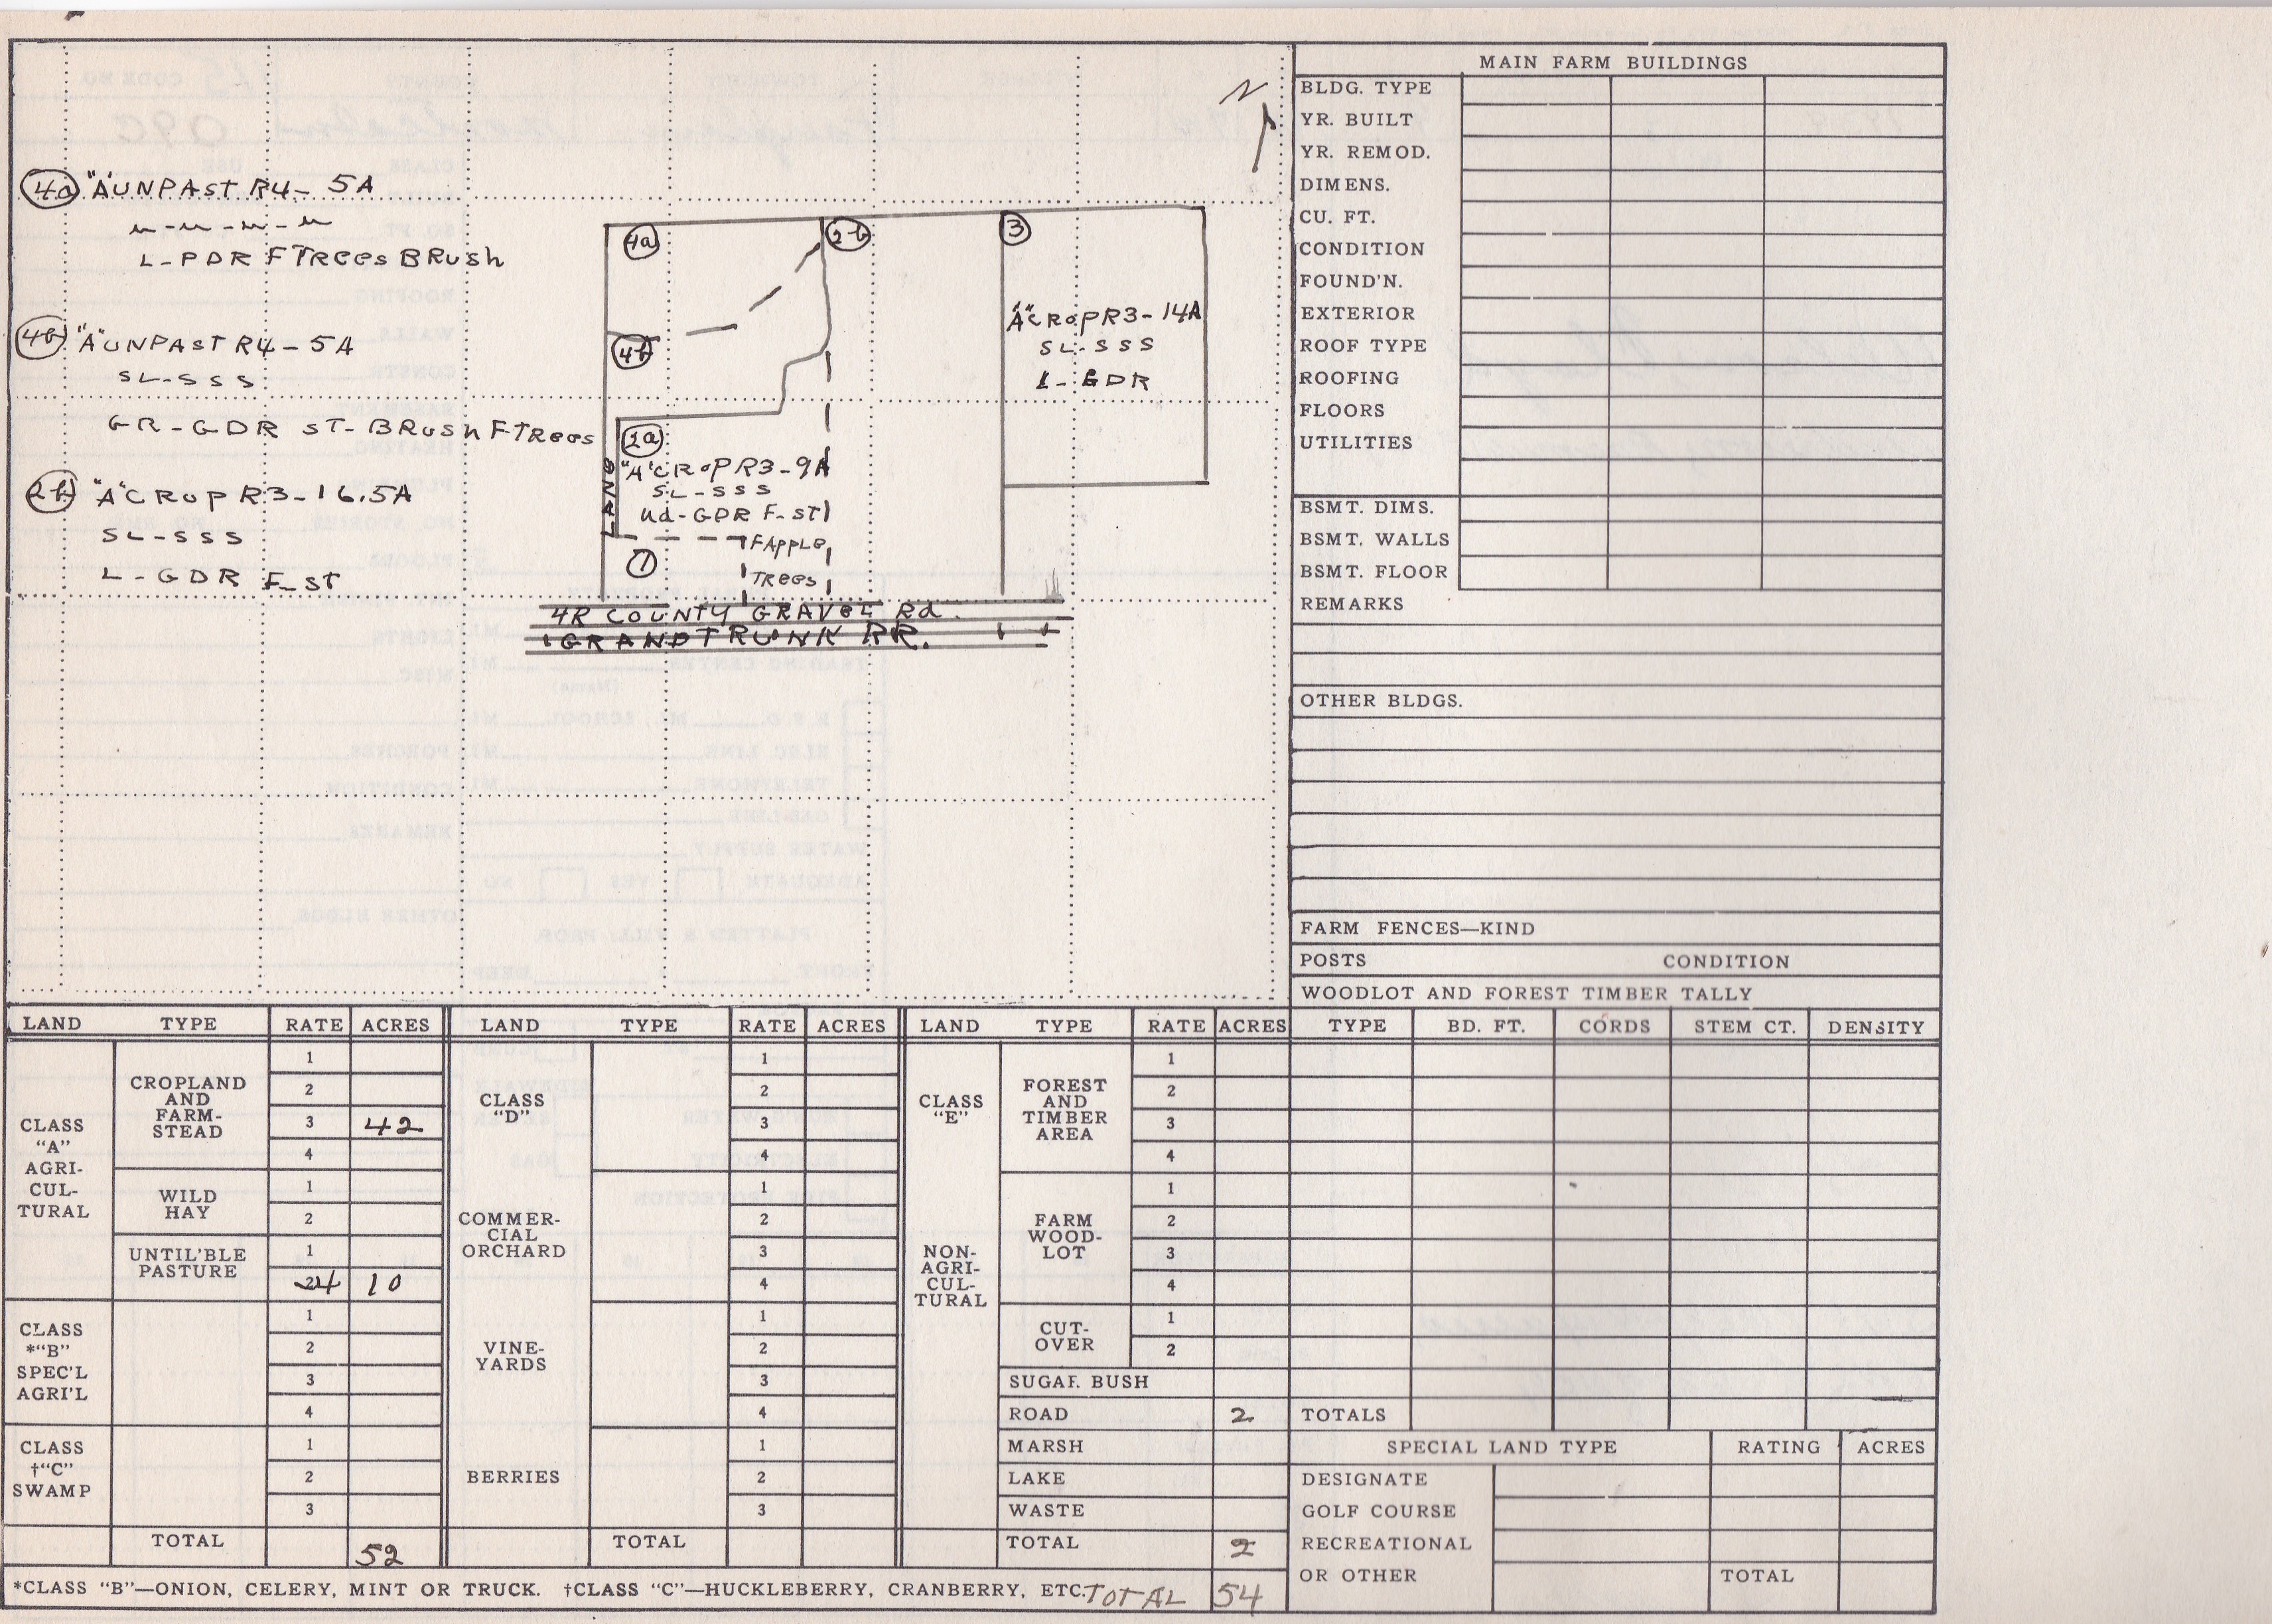 N
(4a) "A" UNPAST R4 - 5A
L-PDR F TREES BRUSH
(4b) "A" UNPAST R4 - 5A
SL-SSS
GR-GDR ST-BRUSH F TREES
(2b) "A" CROP R3-16.5A
SL-SSS
L-GDR F-ST
4a
2b
3
"A" CROP R3-14A
SL-SSS
L-GDR
4b
2a
LANE
"A" CROP R3-9A
SL-SSS
Ud-GDR F-ST
1
F APPLE
TREES
4R COUNTY GRAVEL Rd.
GRAND TRUNK RR.
MAIN FARM BUILDINGS
BLDG. TYPE
YR. BUILT
YR. REMOD.
DIMENS.
CU. FT.
CONDITION
FOUND'N.
EXTERIOR
ROOF TYPE
ROOFING
FLOORS
UTILITIES
BSMT. DIMS.
BSMT. WALLS
BSMT. FLOOR
REMARKS
OTHER BLDGS.
FARM FENCES—KIND
POSTS CONDITION
WOODLOT AND FOREST TIMBER TALLY
TYPE BD. FT. CORDS STEM CT. DENSITY
TOTALS
SPECIAL LAND TYPE RATING ACRES
DESIGNATE
GOLF COURSE
RECREATIONAL
OR OTHER TOTAL
LAND TYPE RATE ACRES
CLASS "A" AGRI-CUL-TURAL
CROPLAND AND FARM-STEAD
1
2
3 42
4
WILD HAY
1
2
UNTIL'BLE PASTURE
1
4 10
CLASS *"B" SPEC'L AGRI'L
1
2
3
4
CLASS †"C" SWAMP
1
2
3
TOTAL 52
LAND TYPE RATE ACRES
CLASS "D"
COMMER-CIAL ORCHARD
1
2
3
4
1
2
3
4
VINE-YARDS
1
2
3
4
BERRIES
1
2
3
TOTAL
LAND TYPE RATE ACRES
CLASS "E"
NON-AGRI-CUL-TURAL
FOREST AND TIMBER AREA
1
2
3
4
FARM WOOD-LOT
1
2
3
4
CUT-OVER
1
2
SUGAR BUSH
ROAD 2
MARSH
LAKE
WASTE
TOTAL 2
*CLASS "B"—ONION, CELERY, MINT OR TRUCK. †CLASS "C"—HUCKLEBERRY, CRANBERRY, ETC. TOTAL 54